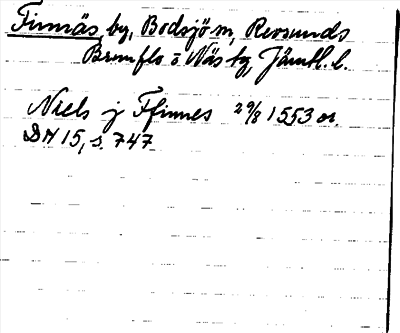 Finnäs by, Bodsjö sn, Revsunds
Brunflo o Näs tg, Jämtl. l.
Niels j Ffinnes 29/8 1553 or.
DN 15, s. 747